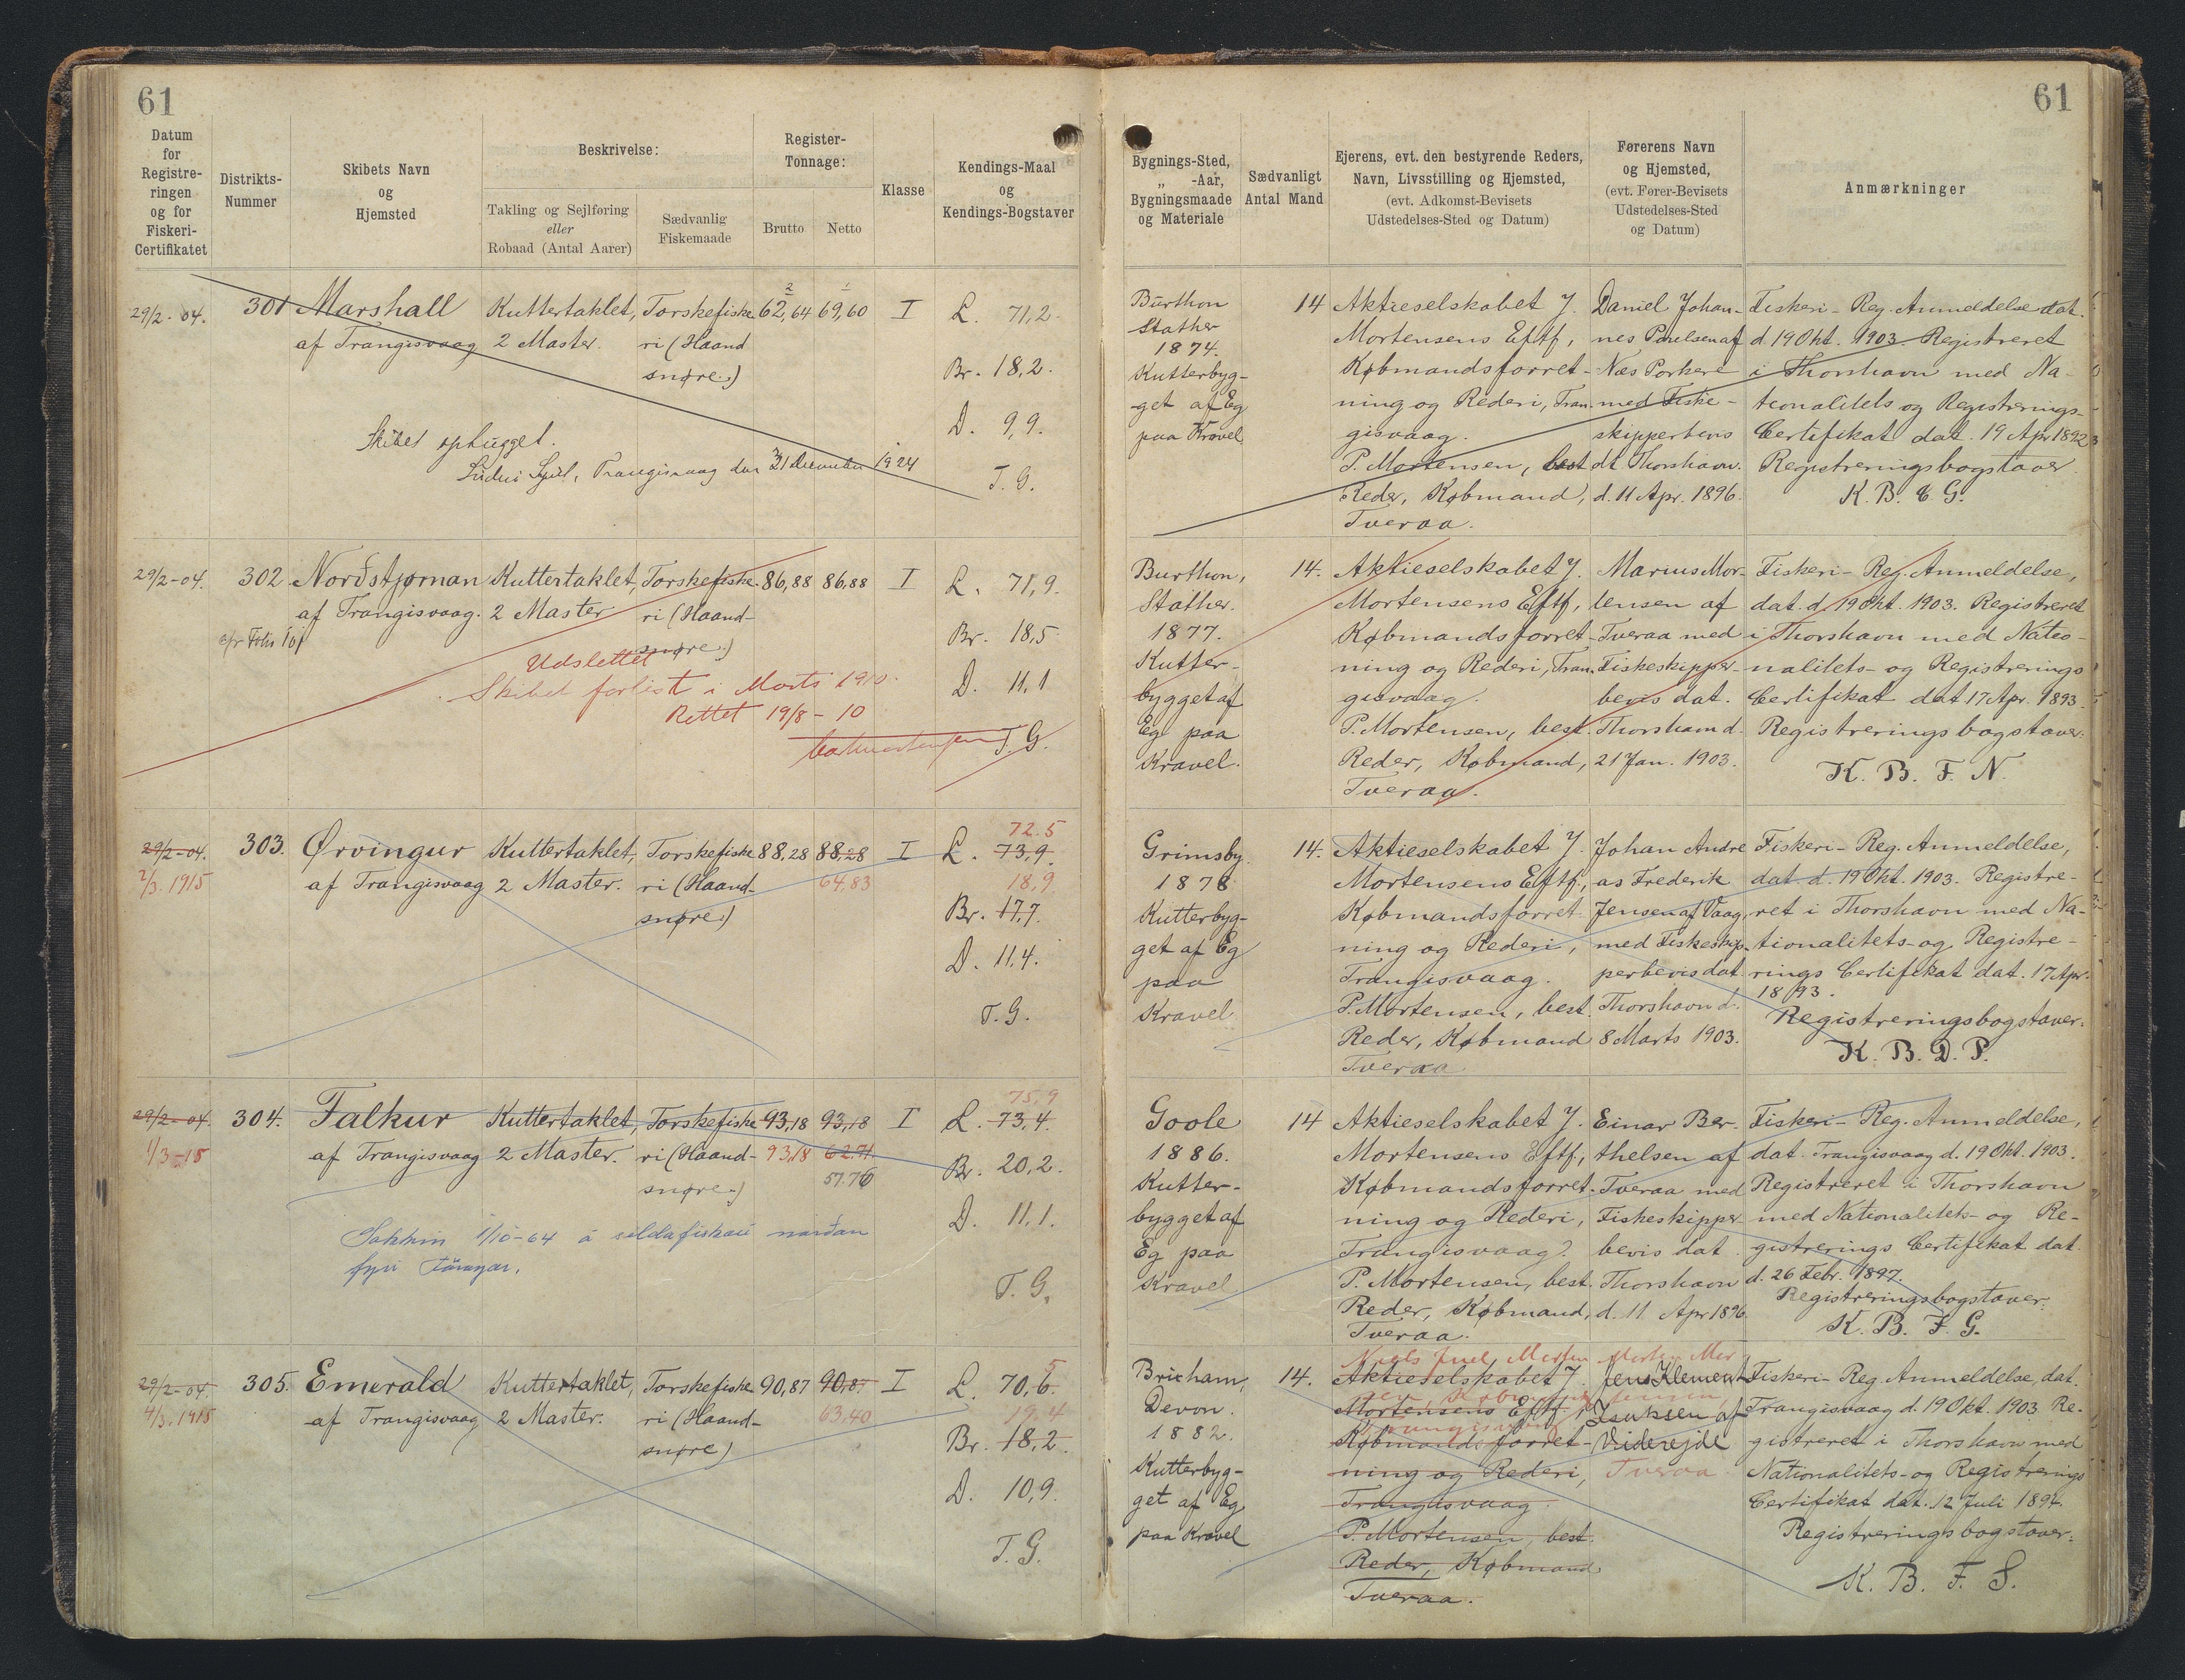 61
61
Datum
for
Registre-
ringen
og for
Fiskeri-
Certifikatet
Distrikts-
Nummer
Skibets Navn
og
Hjemsted
Beskrivelse:
Takling og Sejlføring
eller
Robaad (Antal Aarer)
Sædvanlig
Fiskemaade
Register-
Tonnage:
Brutto
Netto
Klasse
Kendings-Maal
og
Kendings-Bogstaver
Bygnings-Sted,
„ -Aar,
Bygningsmaade
og Materiale
Sædvanligt
Antal Mand
Ejerens, evt. den bestyrende Reders,
Navn, Livsstilling og Hjemsted,
(evt. Adkomst-Bevisets
Udstedelses-Sted og Datum)
Førerens Navn
og Hjemsted,
(evt. Fører-Bevisets
Udstedelses-Sted
og Datum)
Anmærkninger
29/2-04.
301
Marshall
af Trangisvaag
Kuttertaklet,
2 Master.
Torskefiske
ri (Haand
snøre.)
62,64
69,60
I
L. 71,2.
Br. 18,2.
D. 9,9.
T. G.
Skibet ophugget.
Trangisvaag den 31 December 1924
Burthon
Stather
1874.
Kutterbyg-
get af Eg
paa Kravel
14
Aktieselskabet J.
Mortensens Eftf,
Købmandsforret-
ning og Rederi, Tran-
gisvaag.
P. Mortensen, best
Reder, Købmand,
Tveraa.
Daniel Johan-
nes Poulsen af
Næs Porkere
med Fiske-
skipperbevis
dt Thorshavn.
d. 11 Apr. 1896.
Fiskeri-Reg. Anmeldelse dat.
d. 19 Okt. 1903. Registreret
i Thorshavn med Na-
tionalitets og Registrerings-
Certifikat dat. 19 Apr 1892
Registreringsbogstaver.
K. B. C. G.
29/2-04.
302
Norðstjørnan
af Trangisvaag.
Kuttertaklet,
2 Master
Torskefiske-
ri (Haand-
snøre.)
86,88
86,88
I
L. 71,9.
Br. 18,5
D. 11,1
T. G.
Udslettet
Skibet forlist i Marts 1910.
Rettet 19/8-10
Burthon,
Stather.
1877.
Kutter-
bygget af
Eg paa
Kravel.
14.
Aktieselskabet J.
Mortensens Eftf,
Købmandsforret-
ning og Rederi, Tran-
gisvaag.
P. Mortensen, best.
Reder, Købmand,
Tveraa.
Marius Mor-
tensen af
Tveraa med
Fiskeskipper-
bevis dat.
Thorshavn d.
21 Jan. 1903.
Fiskeri-Reg. Anmeldelse,
dat. d. 19 Okt. 1903. Registreret
i Thorshavn med Natio-
nalitets- og Registrerings
Certifikat dat 17 Apr. 1893.
Registreringsbogstaver.
K. B. F. N.
29/2-04.
2/3.1915
303.
Ørvingur
af Trangisvaag
Kuttertaklet,
2 Master.
Torskefiske
ri (Haand-
snøre.)
88,28
88,28
64.83
I
72.5
L. 73,9.
18,9
Br. 17,7.
D. 11,4.
T. G.
Grimsby.
1878
Kutterbyg-
get af Eg
paa
Kravel
14.
Aktieselskabet J.
Mortensens Eftf.,
Købmandsforret-
ning og Rederi,
Trangisvaag.
P. Mortensen, best.
Reder, Købmand
Tveraa.
Johan Andre
as Frederik
Jensen af Vaag,
med Fiskeskip-
perbevis dat
Thorshavn d.
8 Marts 1903.
Fiskeri-Reg. Anmeldelse,
dat. d. 19 Okt. 1903. Registre-
ret i Thorshavn med Na-
tionalitets- og Registre-
rings Certifikat dat. 17 Apr.
1893.
Registreringsbogstaver.
K. B. D. P.
29/2-04.
1/3-15
304.
Falkur
af Trangisvaag
Kuttertaklet,
2 Master.
Torskefiske
ri (Haand-
snøre.)
93,18
93,18
93,18
62.71
57.76
I
75,9
L. 73,4.
Br. 20,2.
D. 11,1.
T. G.
Sokkin 1/10-64 á sildafiskarí norðan
fyri
Goole
1886.
Kutter-
bygget af
Eg paa
Kravel
14
Aktieselskabet J.
Mortensens Eftf,
Købmandsforret-
ning og Rederi,
Trangisvaag.
P. Mortensen, best.
Reder, Købmand,
Tveraa.
Einar Ber-
thelsen af
Tveraa med
Fiskeskipper-
bevis dat.
Thorshavn
d. 11 Apr 1896
Fiskeri-Reg. Anmeldelse,
dat. Trangisvaag d. 19 Okt. 1903.
Registreret i Thorshavn
med Nationalitets- og Re-
gistrerings Certifikat dat.
d. 26 Febr. 1897.
Registreringsbogstaver.
K. B. F. G.
29/2-04.
4/3.1915
305.
Emerald
af Trangisvaag
Kuttertaklet,
2 Master.
Torskefiske
ri (Haand-
snøre)
90,87
90,87
63.40
I
5
L. 70,6.
19.4
Br. 18,2.
D. 10,9.
T. G.
Brixham,
Devon.
1882.
Kutterbyg-
get af Eg
paa Kravel
14.
Niels Juel
Aktieselskabet J.
Mortensens Eftf.
Trangisvaag
Købmandsforret-
ning og Rederi,
Trangisvaag.
P. Mortensen, best.
Reder, Købmand
Tveraa.
Jens Klement
Isaksen af
Viderejde
Tveraa
Fiskeri-Reg. Anmeldelse, dat.
Trangisvaag d. 19 Okt. 1903. Re-
gistreret i Thorshavn med
Nationalitets- og Registrerings
Certifikat dat. 12 Juli 1897.
Registreringsbogstaver.
K. B. F. S.